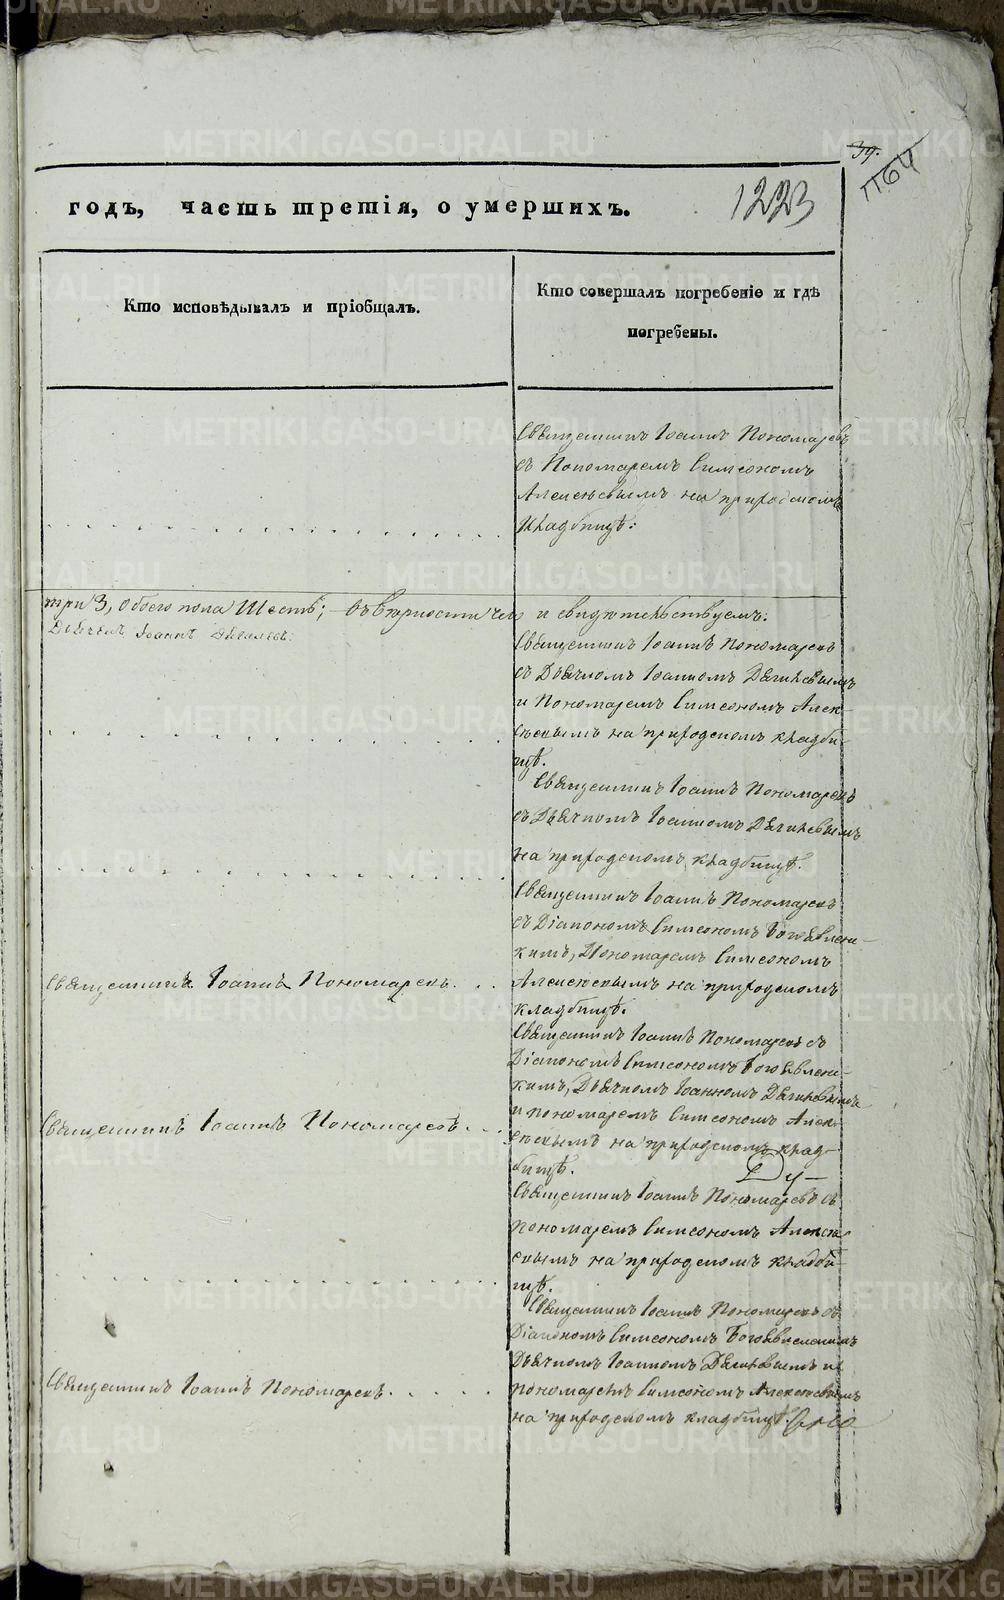 39.
1164
годъ, часть третія, о умершихъ.
1223
Кто исповѣдывалъ и пріобщалъ.
Кто совершалъ погребеніе и гдѣ
погребены.
Священникъ Іоаннъ Пономаревъ
съ Пономаремъ Симеономъ
Алексѣевымъ на приходскомъ
кладбищѣ:
три 3, обоего пола Шесть; въ вѣрности чего и свидѣтельствуемъ:
Дьячекъ Іоаннъ
Священникъ Іоаннъ Пономаревъ
съ Дьячкомъ Іоанномъ
и Пономаремъ Симеономъ Алек-
сѣевымъ на приходскомъ кладби-
щѣ.
Священникъ Іоаннъ Пономаревъ
съ Дьячкомъ Іоанномъ
на приходскомъ кладбищѣ.
Священникъ Іоаннъ Пономаревъ
съ Діакономъ Симеономъ Богоявленс-
кимъ, Пономаремъ Симеономъ
Священникъ Іоаннъ Пономаревъ.
Алексѣевымъ на приходскомъ
кладбищѣ.
Священникъ Іоаннъ Пономаревъ съ
Діакономъ Симеономъ Богоявленс-
кимъ, Дьячкомъ Іоанномъ
и пономаремъ Симеономъ Алек-
Священникъ Іоаннъ Пономаревъ.
сѣевымъ на приходскомъ клад-
бищѣ.
Священникъ Іоаннъ Пономаревъ съ
пономаремъ Симеономъ Алексѣ-
евымъ на приходскомъ кладби-
щѣ.
Священникъ Іоаннъ Пономаревъ съ
Діакономъ Симеономъ Богоявленскимъ
Дьячкомъ Іоанномъ и
Священникъ Іоаннъ Пономаревъ.
пономаремъ Симеономъ Алексѣевымъ
на приходскомъ кладбищѣ.
METRIKI.GASO-URAL.RU